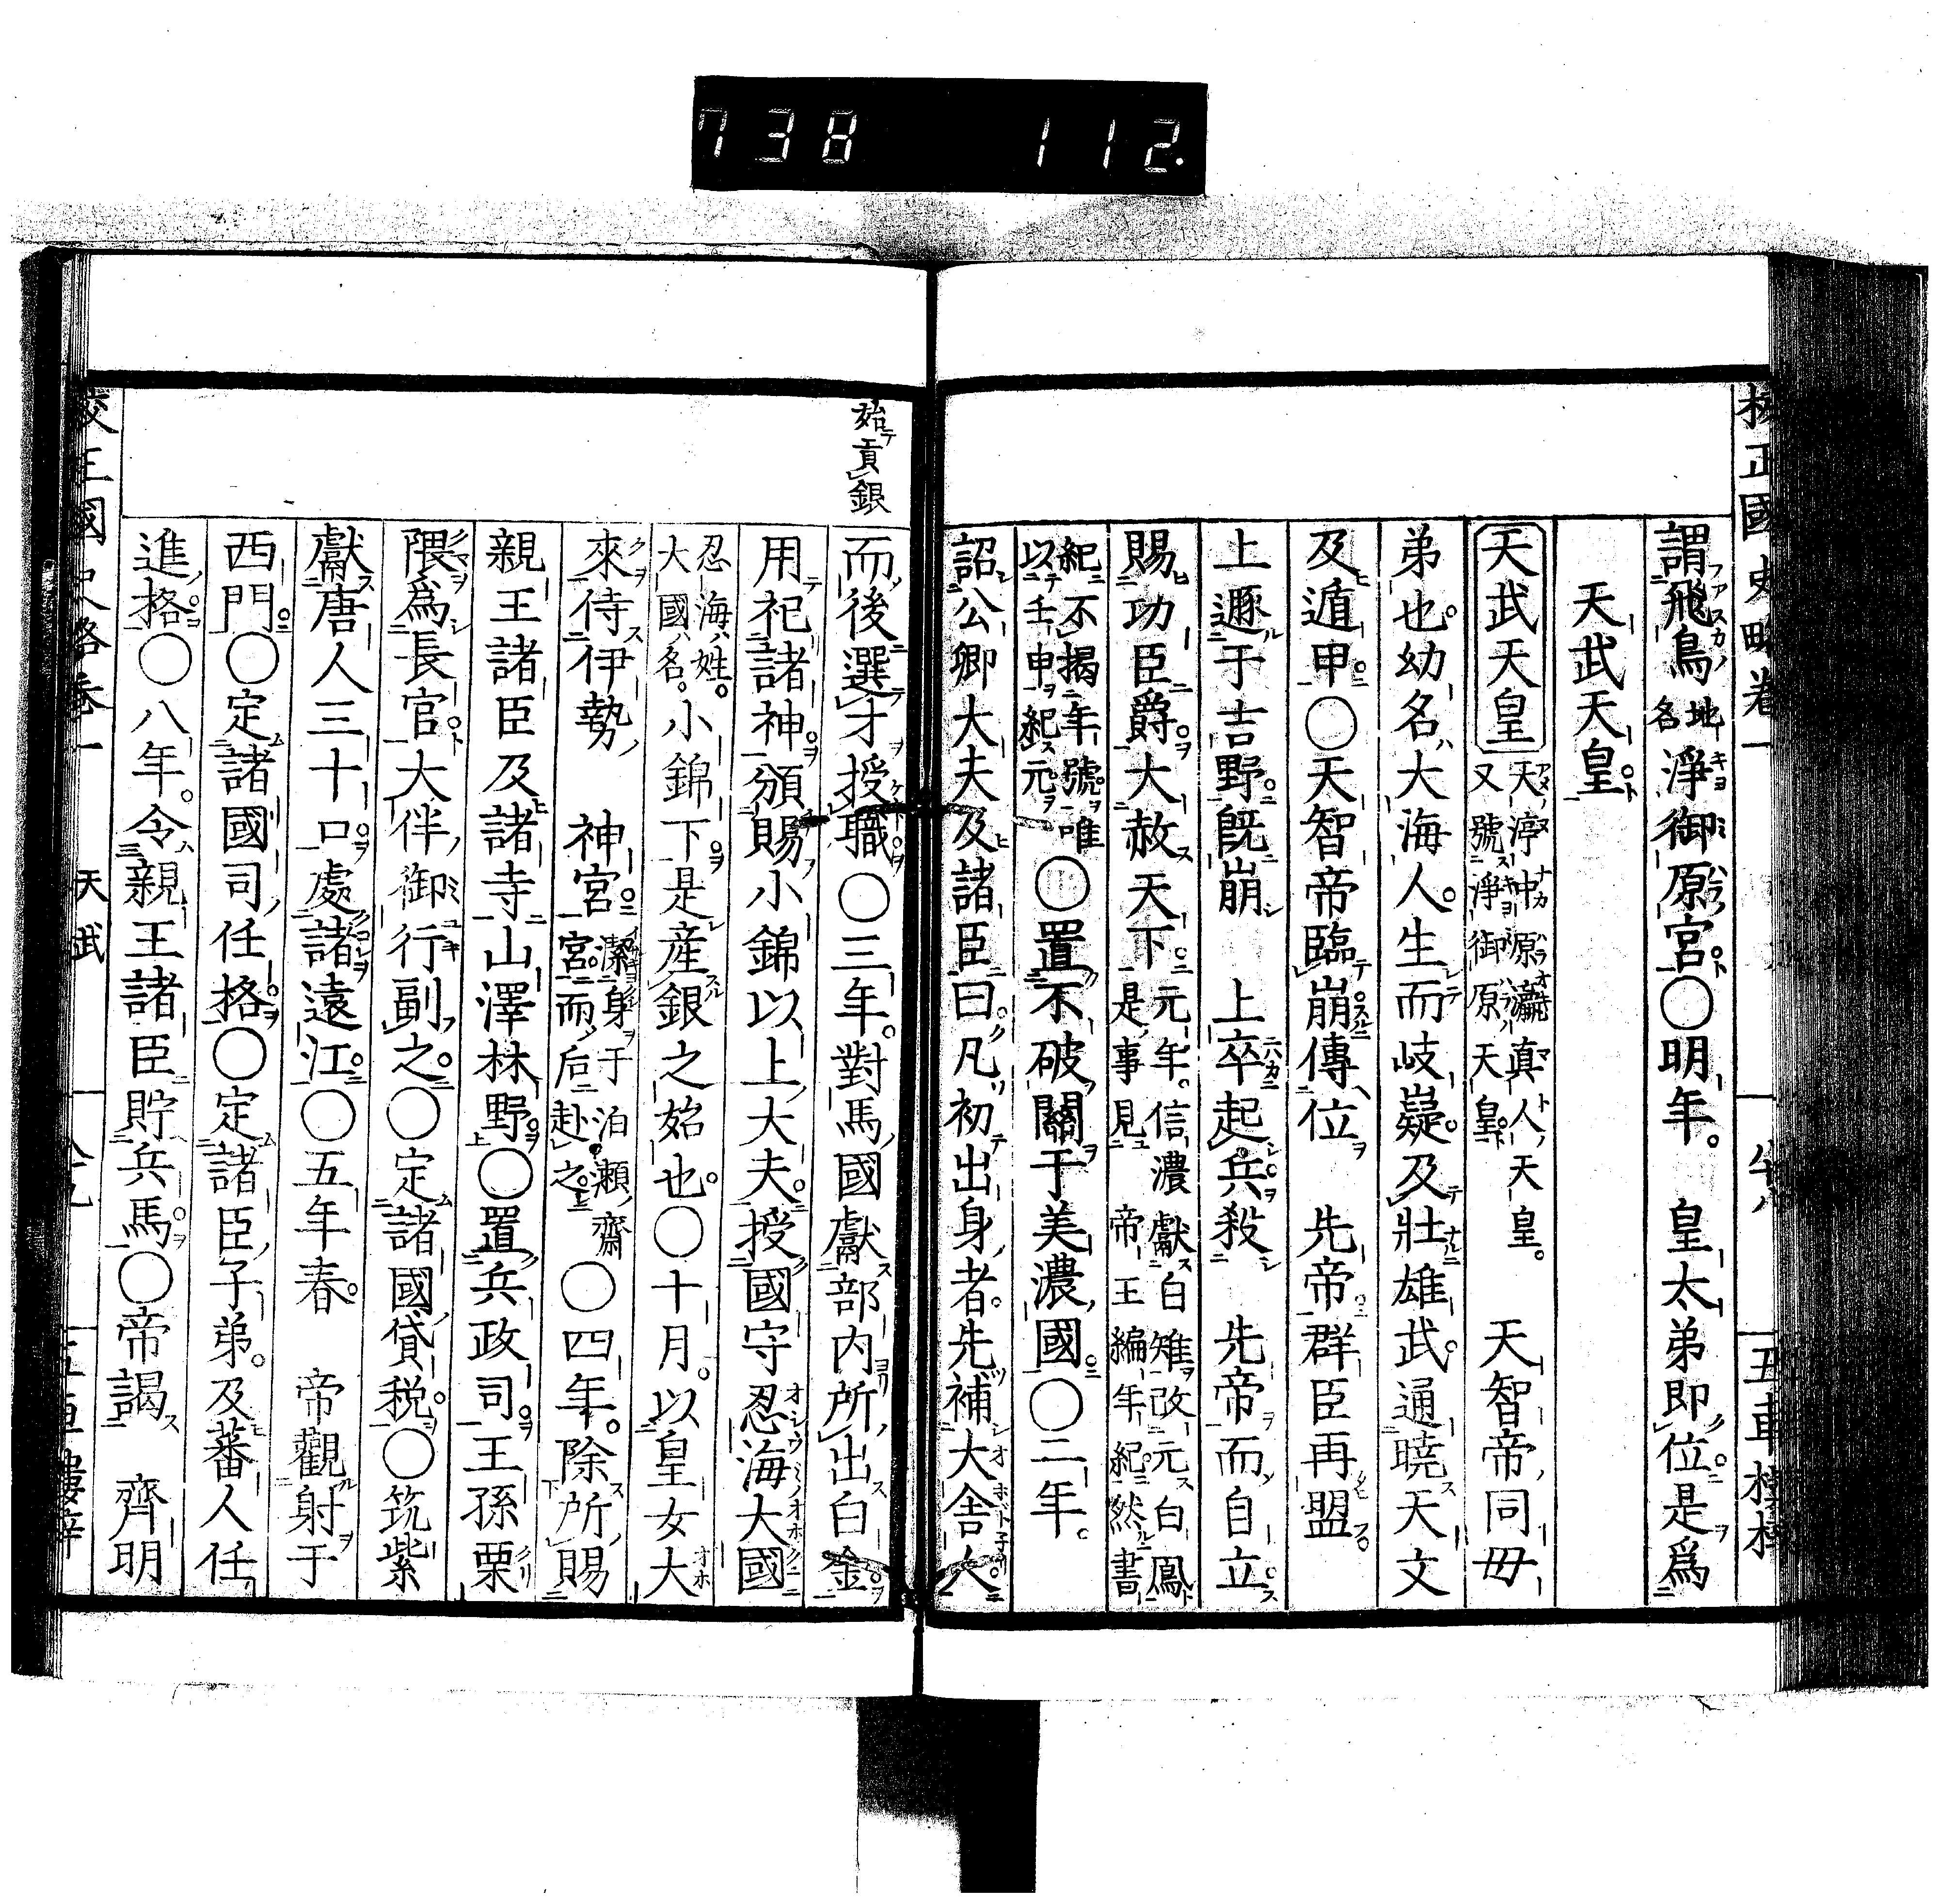 738 112.
校正國史略卷一
謂飛鳥地名淨御原宮○明年。皇太弟即位是爲
天武天皇
天武天皇 天渟中原瀛真人天皇。又號淨御原天皇 天智帝同毋
弟也幼名大海人。生而岐嶷。及壯雄武。通曉天文
及遁甲○天智帝臨崩傳位 先帝群臣再盟
上遯于吉野既崩 上卒起兵殺 先帝而自立
賜功臣爵大赦天下 元年。信濃獻白雉改元白鳳是事見帝王編年紀然書
紀不揭年號唯以壬申紀元○置不破關于美濃國○二年。
詔公卿大夫及諸臣曰凡初出身者。先補大舍人
始貢銀
而後選才授職○三年。對馬國獻部内所出白金
用祀諸神頒賜小錦以上大夫授國守忍海大國
忍海姓。大國名。小錦下是産銀之始也。○十月。以皇女大
來侍伊勢 神宮 潔身于泊瀬齋宮而后赴之○四年。除所賜
親王諸臣及諸寺山澤林野○置兵政司王孫栗
隈爲長官大伴御行副之○定諸國貸税○筑紫
獻唐人三十口處諸遠江○五年春。帝觀射于
西門○定諸國司任格○定諸臣子弟。及蕃人任
進格○八年。令親王諸臣貯兵馬○帝謁 齊明
天武